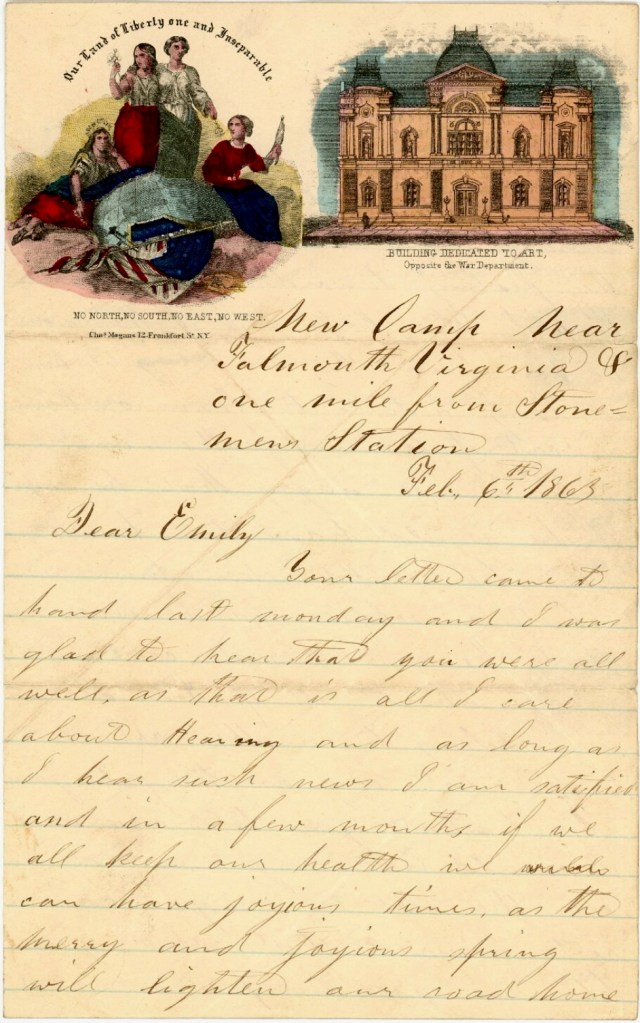 Our Land of Liberty one and Inseparable
BUILDING DEDICATED TO ART,
Opposite the War Department.
NO NORTH, NO SOUTH, NO EAST, NO WEST.
Chas Magnus 12 Frankfort St. N.Y.
New Camp Near
Falmouth Virginia &
one mile from Stone=
mens Station
Feb, 6th 1863
Dear Emily
Your letter came to
hand last monday and I was
glad to hear that you were all
well, as that is all I care
about Hearing and as long as
I hear such news I am satisfied
and in a few months if we
all keep our health we
can have joyious times, as the
merry and joyious spring
will lighten our road home